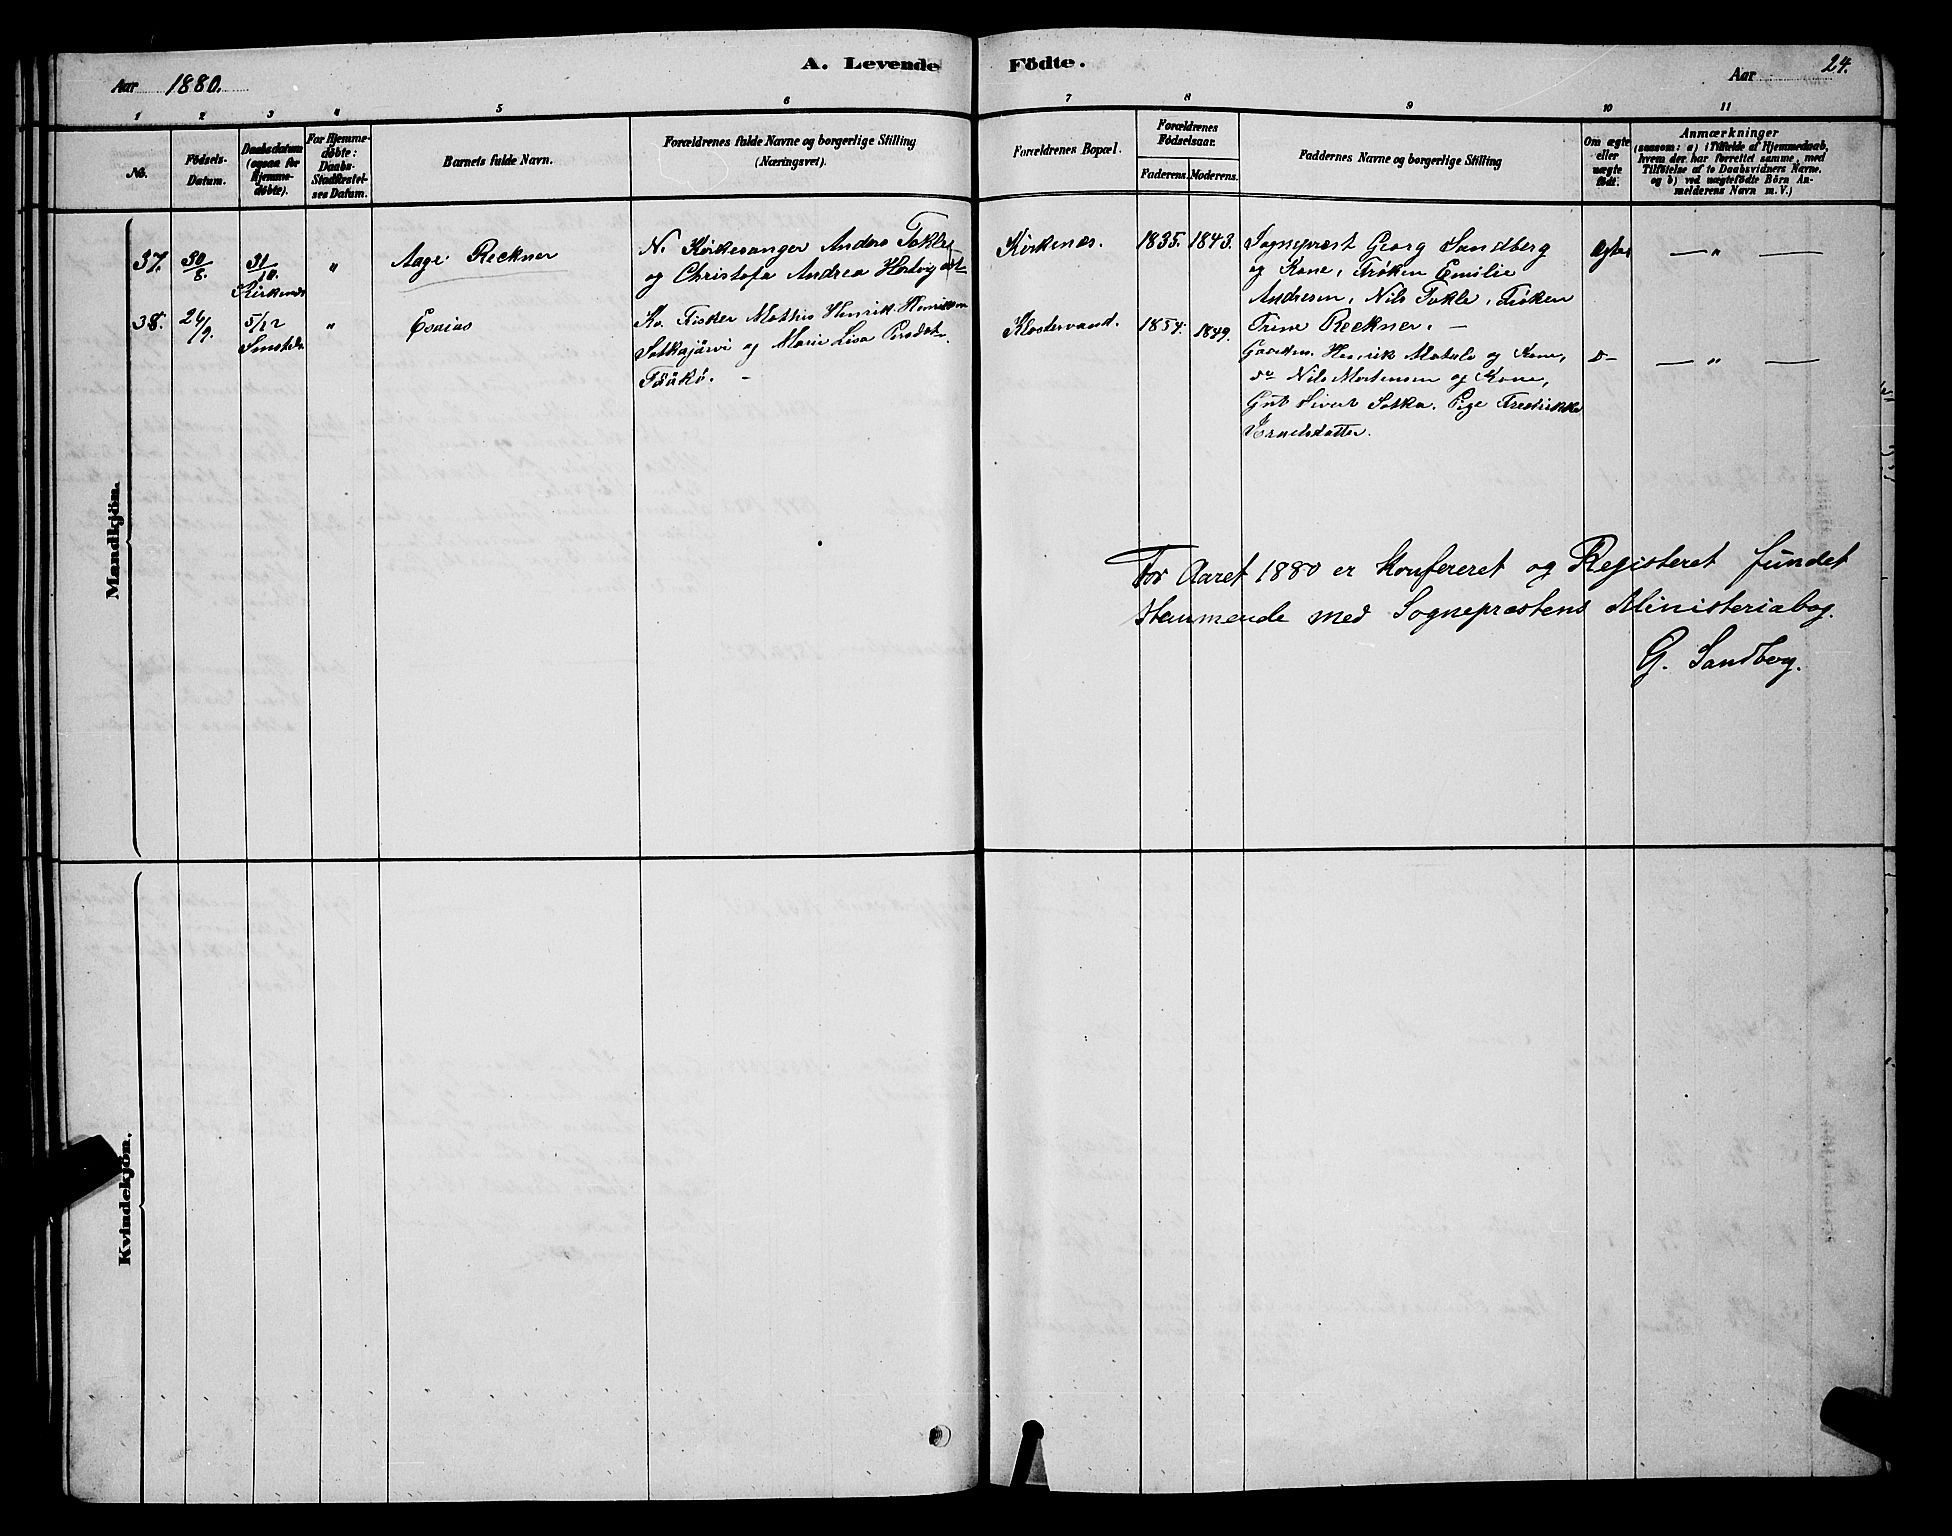 Aar 1880.
A. Levende Födte.
Aar 24.
1 2 3 4 5 6 7 8 9 10 11
No.
Födsels-
Datum.
Daabsdatum
(ogsaa for
Hjemme-
döbte).
For Hjemme-
döbte:
Daabs-
Stadfæstel-
ses Datum.
Barnets fulde Navn.
Forældrenes fulde Navne og borgerlige Stilling
(Næringsvei).
Forældrenes Bopæl.
Forældrenes
Födselsaar.
Faderens. Moderens.
Faddernes Navne og borgerlige Stilling
Om ægte
eller
uægte
födt.
Anmærkninger
(saasom: a) i Tilfælde af Hjemmedaab,
hvem der har forrettet samme, med
Tilföielse af to Daabsvidners Navne.
og b) ved uægtefödte Börn An-
melderens Navn m. V.)
Mandkjön.
37. 30/8. 31/10. Kirkenæs " Aage Reckner
N. Kirkesanger Anders Tokle
og Christofa Andrea Hertvig
Kirkenæs. 1835. 1843.
Sognepræst Georg Sandberg
og Kone, Frøken Emilie
Andresen, Nils Tokle, Frøken
Trine Reckner. —
Ægte — " —
38. 24/9. 5/12 " Esaias
Kv. Fisker Mathis Henrik Henriksen
Sotkajärvi og Marie Lisa Persdat.
Klostervand. 1854. 1849.
Henrik Matala og Kone,
do Nils Mortensen og Kone,
Gut Sivert Sotka. Pige Fredrikke
Israelsdatter.
D— — " —
For Aaret 1880 er konfereret og Registeret fundet
stemmende med Sognepræstens Ministerialbog.
G. Sandberg.
Kvindekjön.